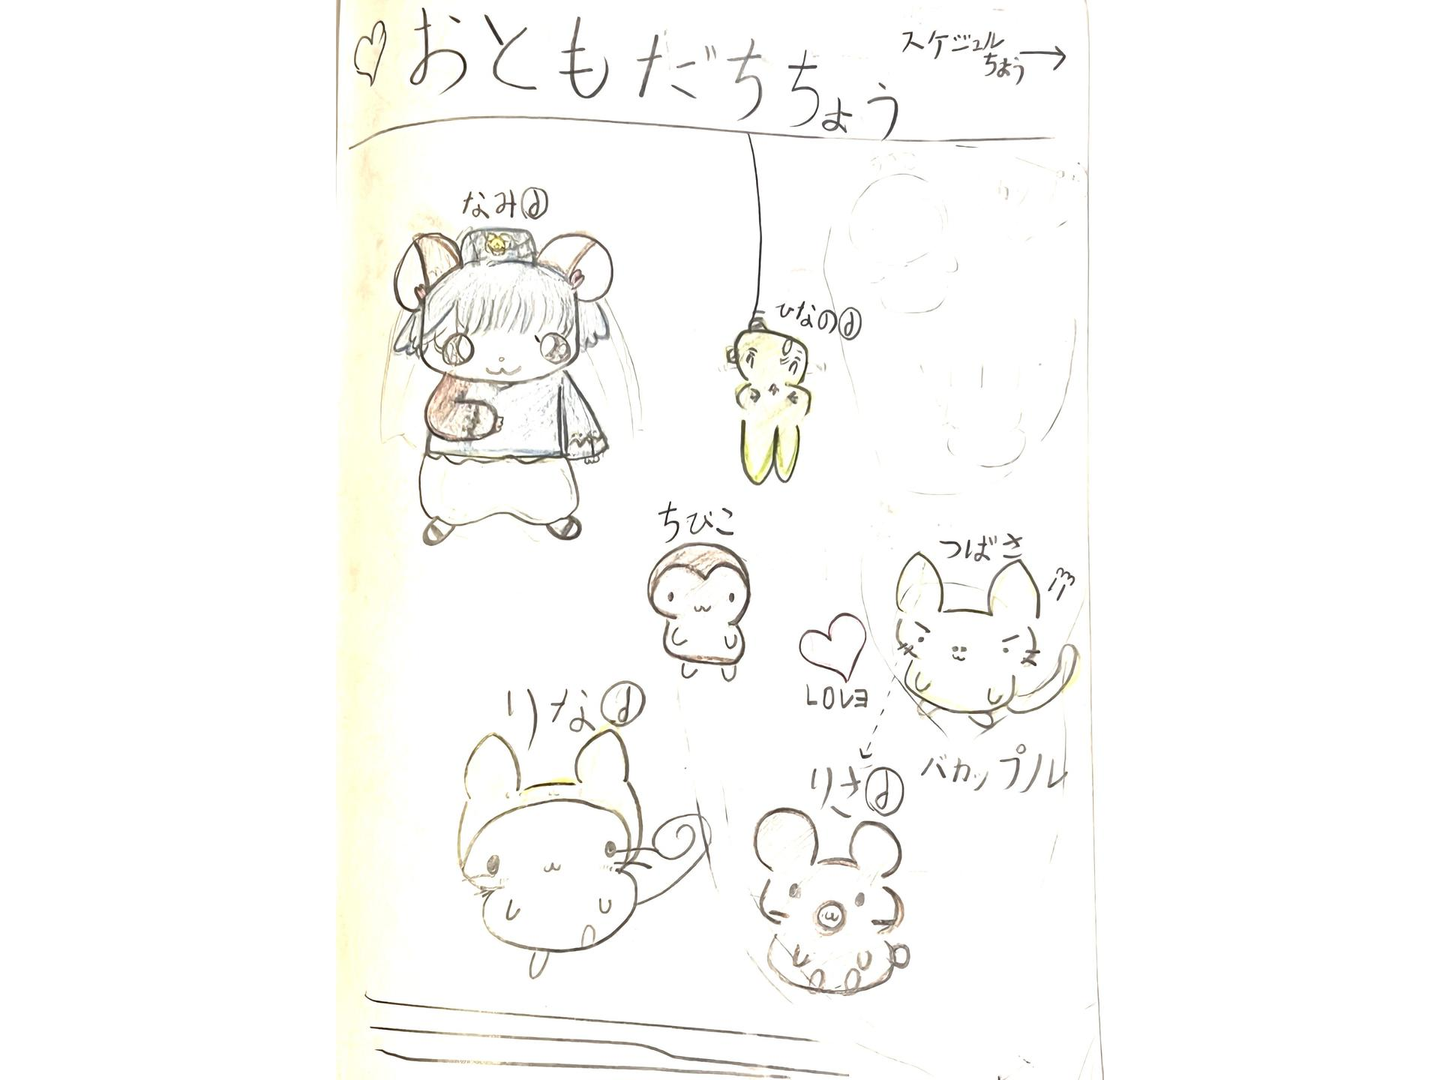 おともだちちょう
スケジュル
ちょう
なみⓓ
ひなのⓓ
ちびこ
つばさ
LOVE
りなⓓ
バカップル
りさⓓ